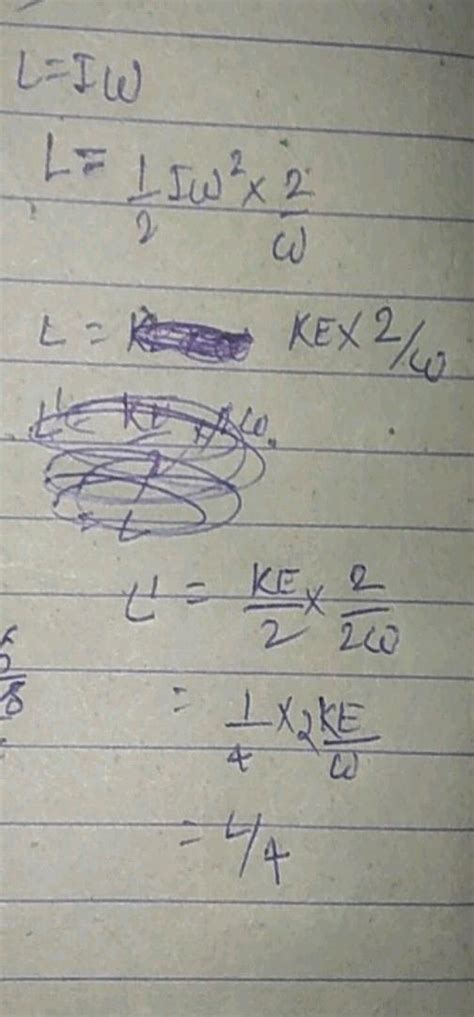 L=Iω
L= 1/2 Iω² × 2/ω
L = KE × 2/ω
L' = KE/2 × 2/2ω
= 1/4 × 2KE/ω
= L/4